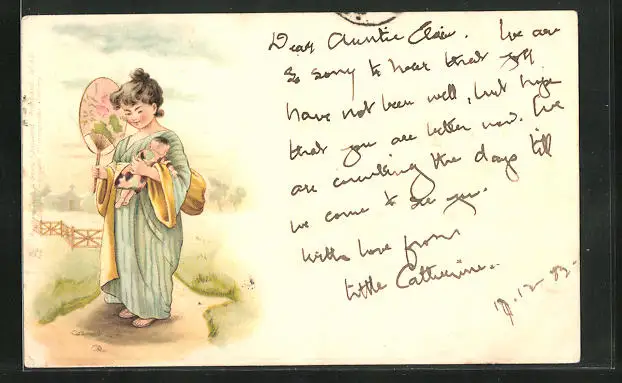 Dear Auntie Clair. We are
so sorry to hear that you
have not been well, but hope
that you are better now. We
are counting the days till
we come to see you.
With love from
little Catherine.
12. 92.